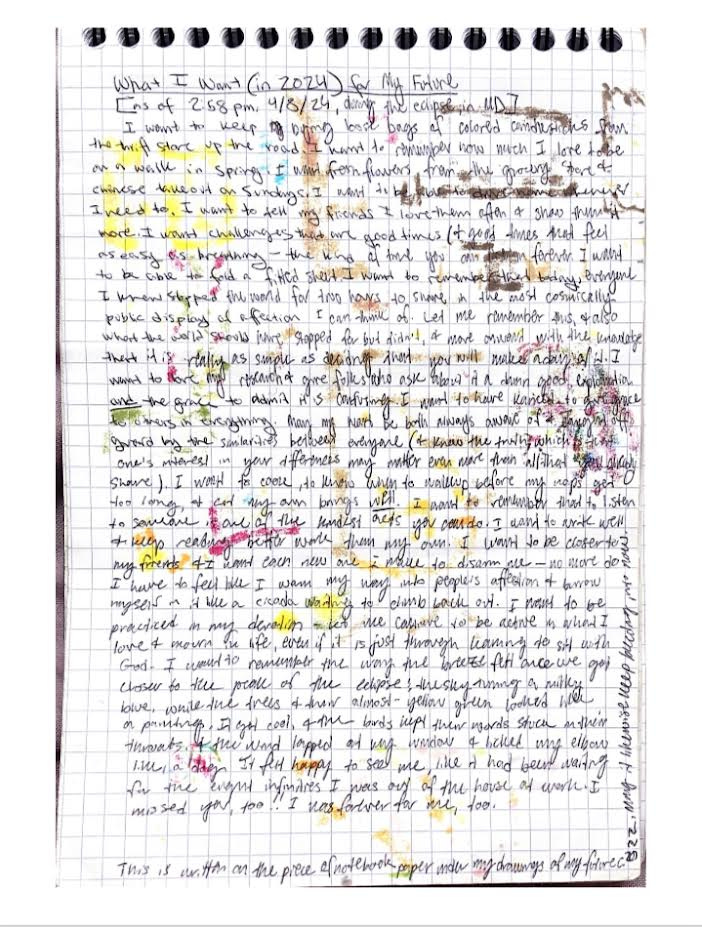 What I Want (in 2024) for My Future
[as of 2:58 pm, 4/8/24, during the eclipse in MD]
I want to keep buying loose bags of colored from
the thrift store up the road. I want to remember how much I love to be
on a walk in spring. I want fresh flowers from the grocery store &
chinese takeout on Sundays. I want to be able to drive home whenever
I need to. I want to tell my friends I love them often & show them it
more. I want challenges that are good times (& good times that feel
as easy as breathing – the kind of time you can forever. I want
to be able to fold a fitted sheet. I want to remember that today, everyone
I knew stopped the world for two hours to share in the most cosmically
public display of affection I can think of. Let me remember this, & also
what the world should have stopped for but didn't, & move onward with the knowledge
that it is really as simple as deciding that you will make a day of it. I
want to love my research & give folks who ask about it a damn good explanation
and the grace to admit it is confusing. I want to have learned to give grace
to others in everything. May my heart be both always aware of & caught off
guard by the similarities between everyone (& know the truth, which is that
one's interest in your differences may matter even more than all that you already
share). I want to cook, to know when to wake up before my naps get
too long, & cut my own bangs well. I want to remember that to listen
to someone is one of the kindest acts you can do. I want to write well
& keep reading better work than my own. I want to be closer to
my friends & I want each new one I make to disarm me – no more do
I have to feel like I worm my way into people's affection & burrow
myself in it like a cicada waiting to climb back out. I want to be
practiced in my devotion – let me continue to be active in what I
love & mourn in life, even if it is just through learning to sit with
God. I want to remember the way the breeze felt once we got
closer to the peak of the eclipse; the sky turning a milky
blue, while the trees & their almost-yellow green looked like
a painting. It got cool, & the birds kept their words stuck in their
throats, & the wind lapped at my window & licked my elbow
like a dog. It felt happy to see me, like it had been waiting
for the eight infinities I was out of the house at work. I
missed you, too!! It was forever for me, too.
This is written on the piece of notebook paper under my drawings of my future c.
2022. May it likewise keep bleeding into now.